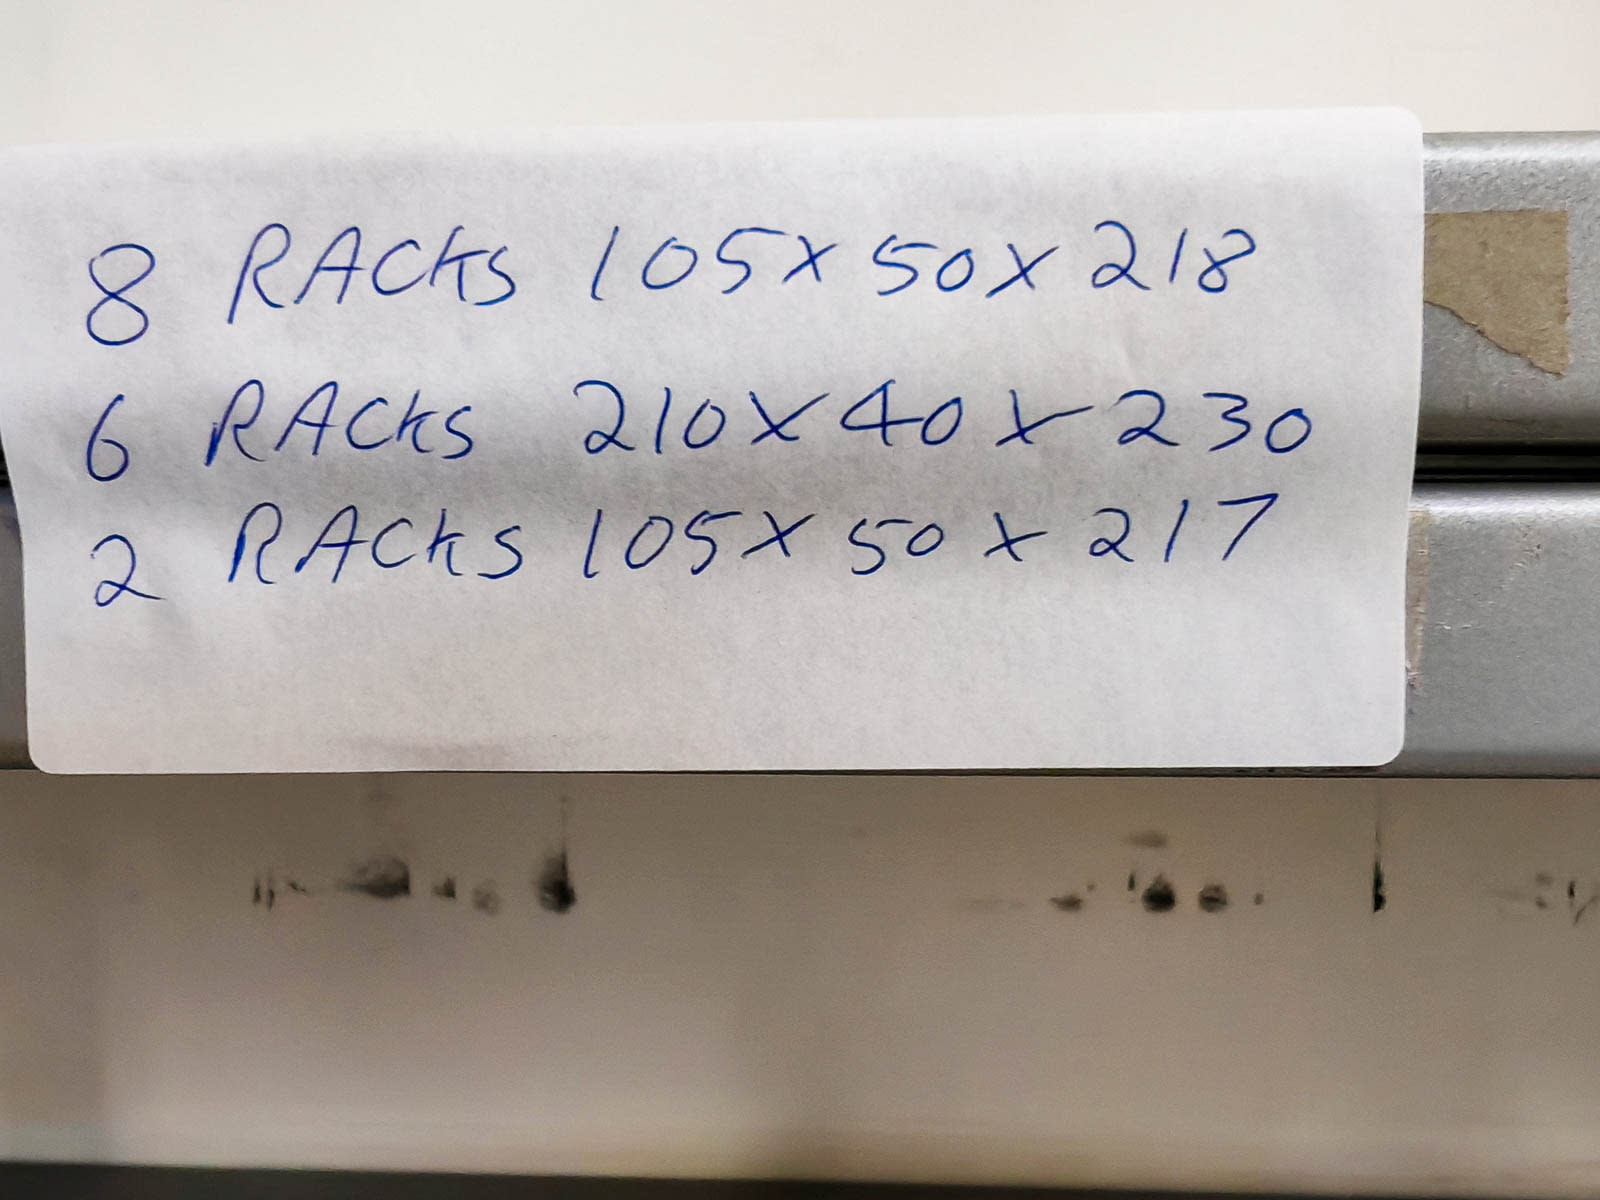 8 RACKS 105 x 50 x 218
6 RACKS 210 x 40 x 230
2 RACKS 105 x 50 x 217